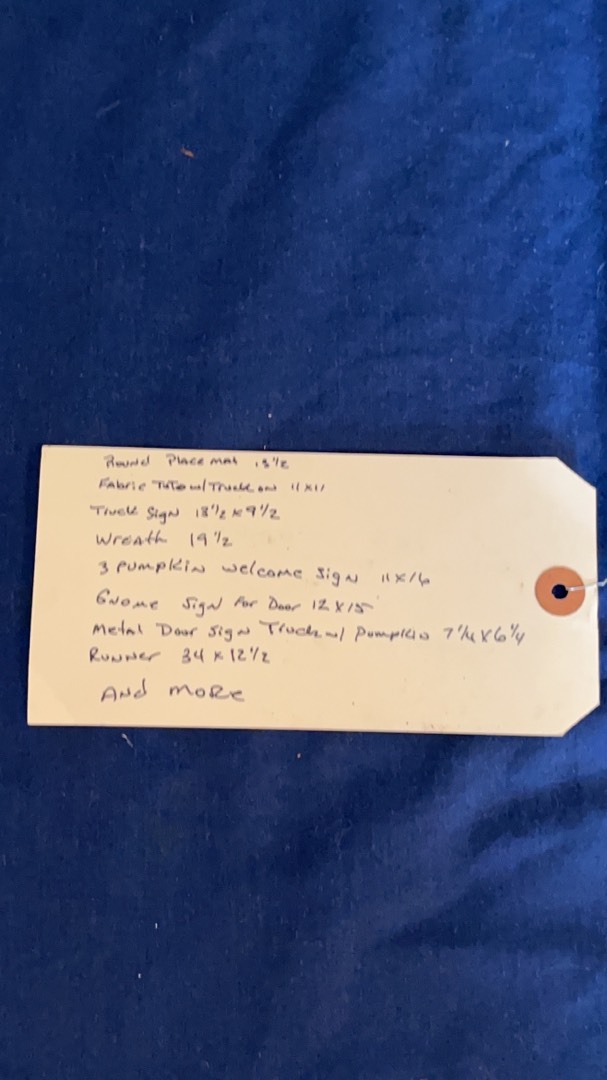 Round Place mat 15 1/2
Fabric Tote w/ Truck on 11 x 11
Truck Sign 13 1/2 x 9 1/2
Wreath 19 1/2
3 Pumpkin welcome Sign 11 x 16
Gnome Sign For Door 12 x 15
Metal Door Sign Truck w/ Pumpkin 7 1/4 x 6 1/4
Runner 34 x 12 1/2
And More